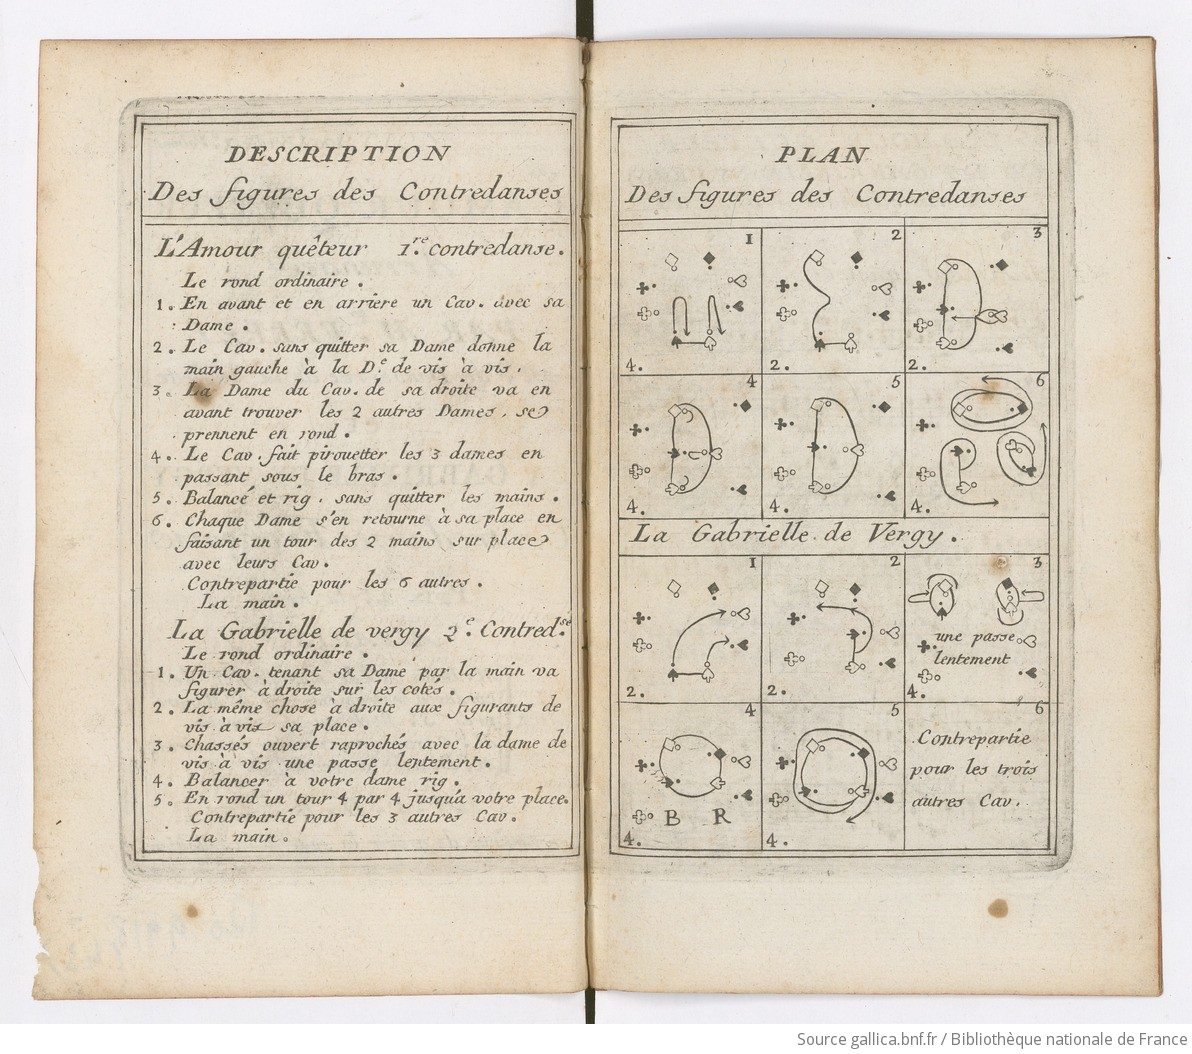 DESCRIPTION
Des figures des Contredanses
L'Amour quêteur 1.re contredanse.
Le rond ordinaire.
1. En avant et en arriere un Cav. avec sa
Dame.
2. Le Cav. sans quitter sa Dame donne la
main gauche à la D.e de vis à vis.
3. La Dame du Cav. de sa droite va en
avant trouver les 2 autres Dames, se
prennent en rond.
4. Le Cav. fait pirouetter les 3 dames en
passant sous le bras.
5. Balancé et rig. sans quitter les mains.
6. Chaque Dame s'en retourne à sa place en
faisant un tour des 2 mains sur place
avec leurs Cav.
Contrepartie pour les 6 autres.
La main.
La Gabrielle de vergy 2.e Contred.se
Le rond ordinaire.
1. Un Cav. tenant sa Dame par la main va
figurer à droite sur les cotés.
2. La même chose à droite aux figurants de
vis à vis sa place.
3. Chassés ouvert raprochés avec la dame de
vis à vis une passe lentement.
4. Balancer à votre dame rig.
5. En rond un tour 4 par 4 jusqu'a votre place.
Contrepartie pour les 3 autres Cav.
La main.
PLAN
Des figures des Contredanses
1 2 3
4. 2. 2.
4 5 6
4. 4. 4.
La Gabrielle de Vergy.
1 2 3
une passe
lentement
2. 2. 4.
4 5 6
Contrepartie
pour les trois
autres Cav.
B R
4. 4.
Source gallica.bnf.fr / Bibliothèque nationale de France